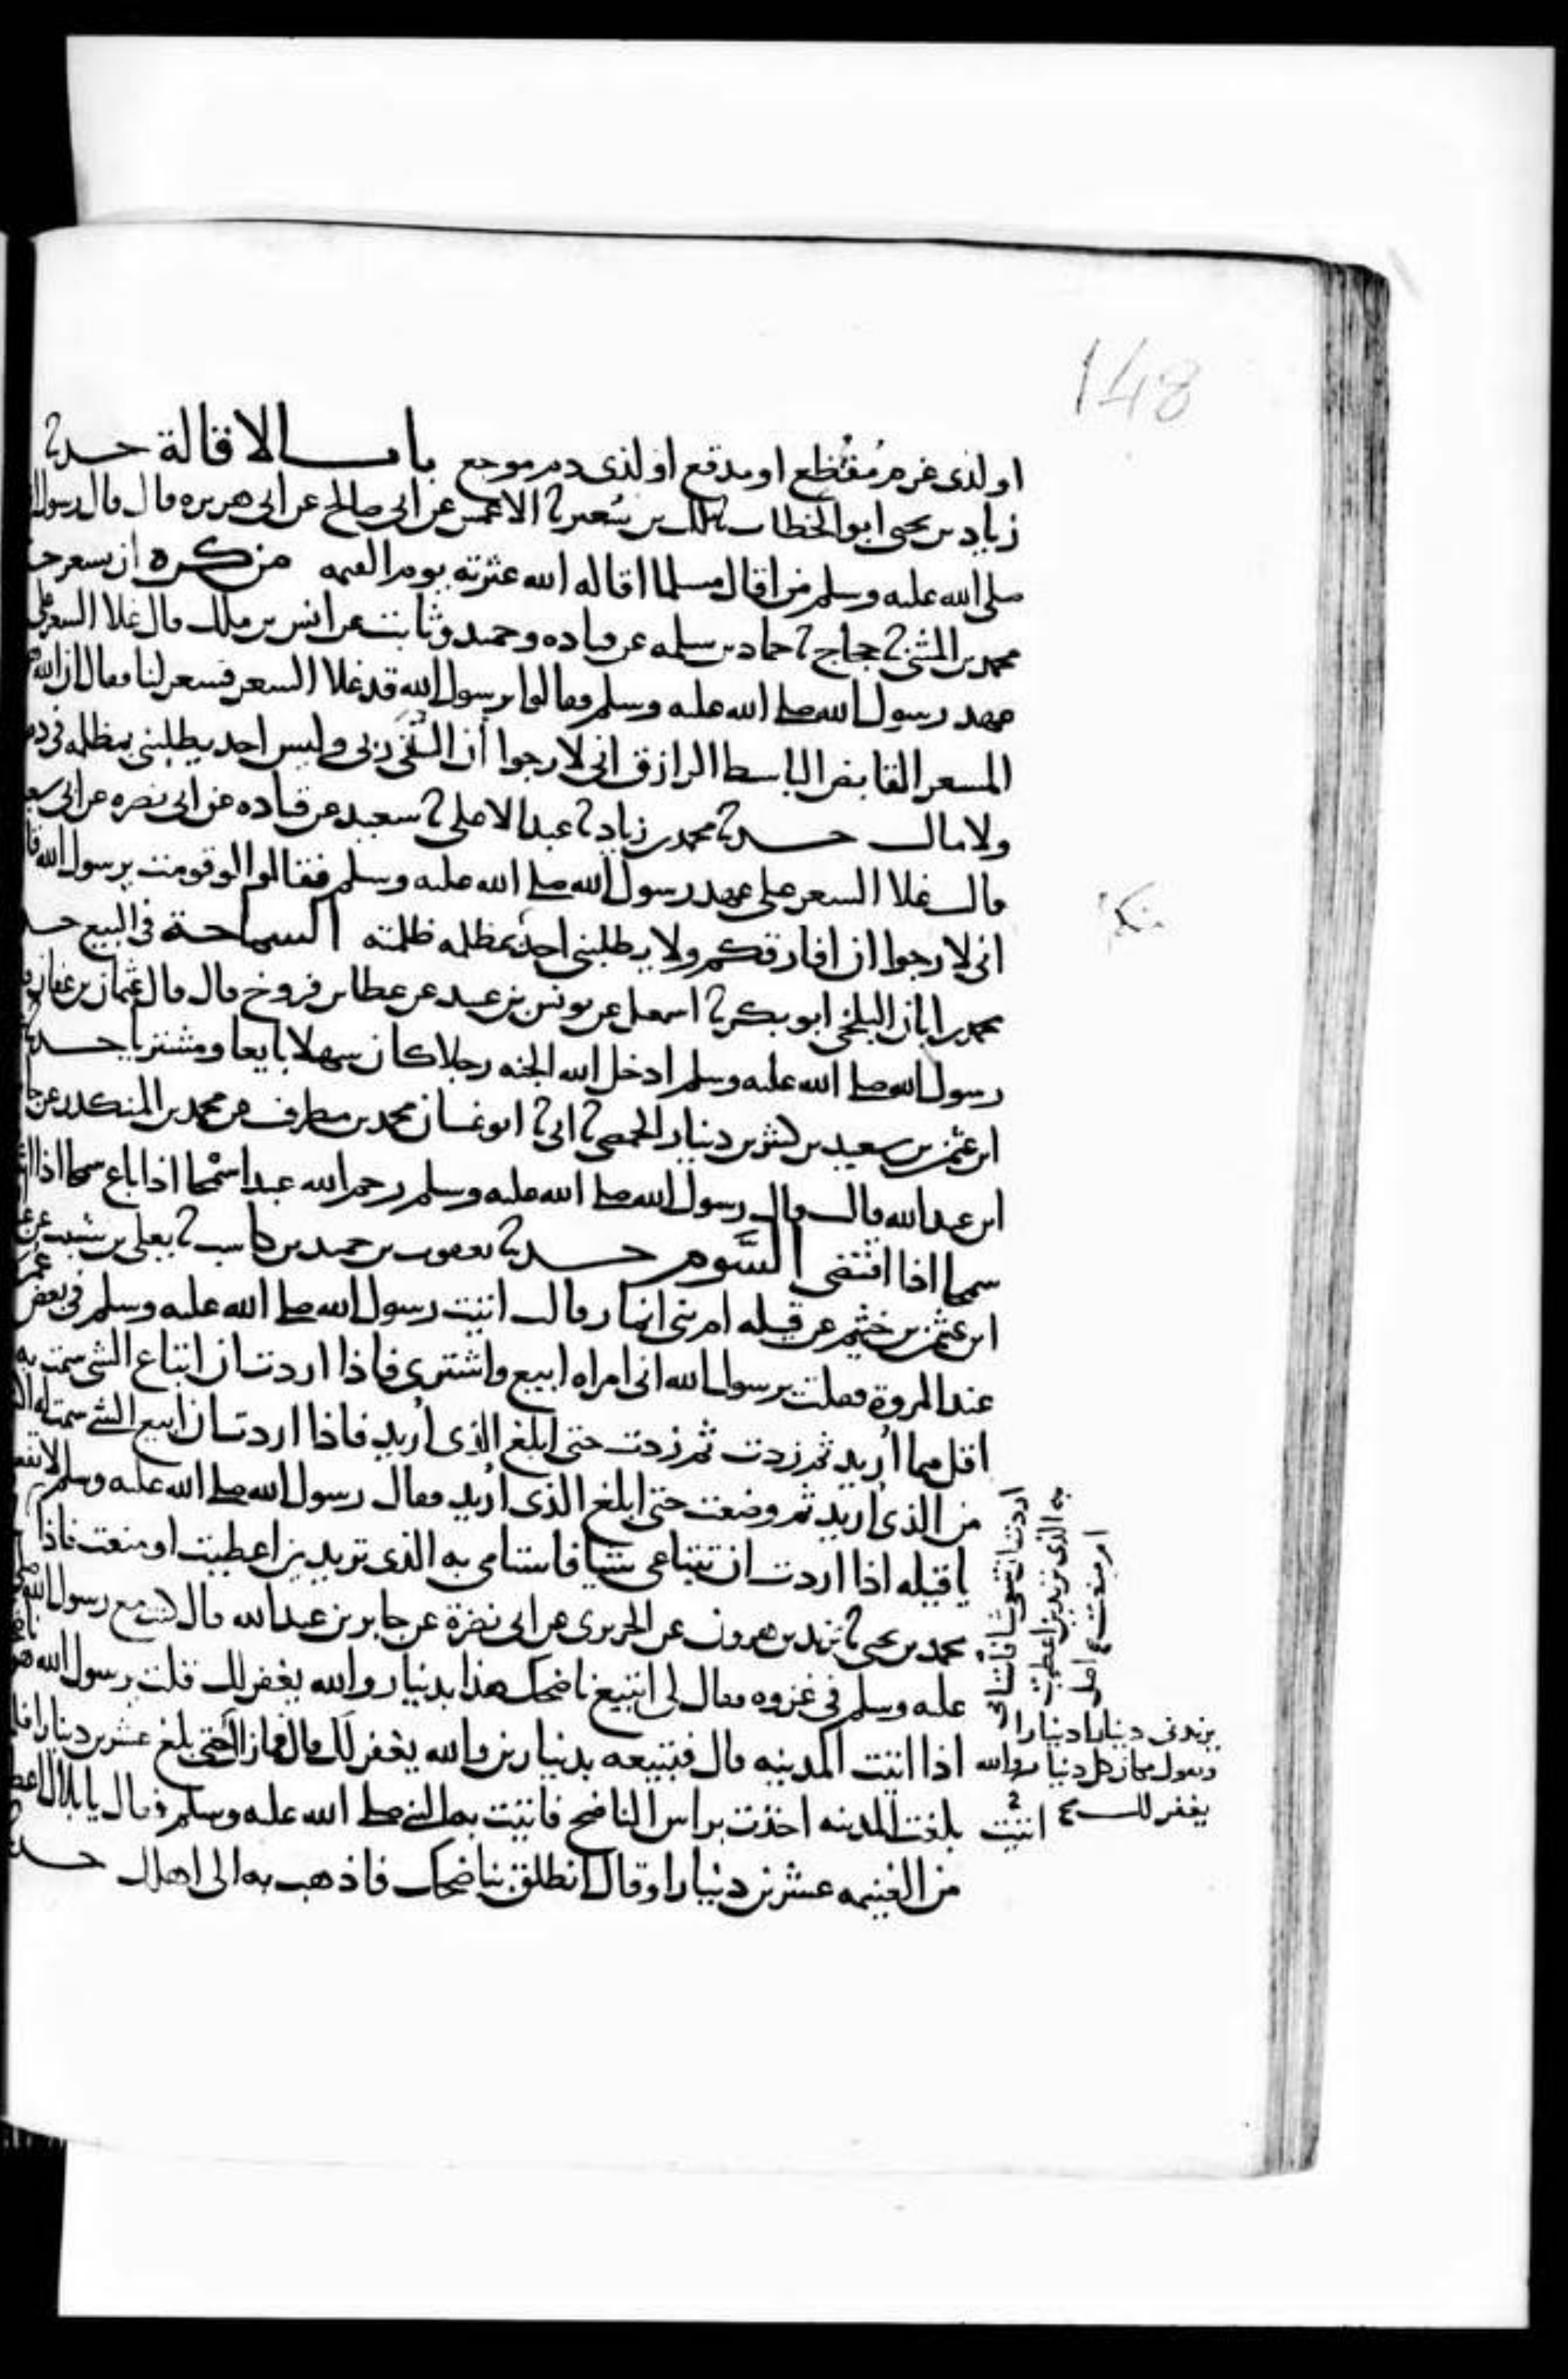 148
او لذى غرم مفظع او مدقع او لذى دم موجع باب الاقالة حدثنا
زياد بن يحيى ابو الخطاب ثنا ملك بن سعير ثنا الاعمش عن ابى صالح عن ابى هريره قال قال رسول
صلى الله عليه وسلم من اقال مسلما اقاله الله عثرته يوم القيمه من كره ان يسعر
محمد بن المثنى ثنا حجاج ثنا حماد بن سلمه عن قتاده وحميد وثابت عن انس بن ملك قال غلا السعر على
عهد رسول الله صلى الله عليه وسلم فقالوا يرسول الله قد غلا السعر فسعر لنا فقال ان الله
المسعر القابض الباسط الرازق انى لارجوا أن القى ربى وليس احد يطلبنى بمظلمه فى
ولا مال حدثنا محمد بن زياد ثنا عبد الاعلى ثنا سعيد عن قتاده عن ابى نضره عن ابى
قال غلا السعر على عهد رسول الله صلى الله عليه وسلم فقالوا لو قومت يرسول الله
انى لارجوا ان افارقكم ولا يطلبنى احد بمظلمه ظلمته السماحة فى البيع
محمد بن ابان البلخى ابو بكر ثنا اسمعيل عن يونس بن عبيد عن عطا بن فروخ قال قال عثمان بن عفان
رسول الله صلى الله عليه وسلم ادخل الله الجنه رجلا كان سهلا بايعا ومشتريا حدثنا
ابن عثمن بن سعيد بن كثير بن دينار الحمصى ثنا ابى ثنا ابو غسان محمد بن مطرف عن محمد بن المنكدر عن
ابن عبد الله قال قال رسول الله صلى الله عليه وسلم رحم الله عبدا سمحا اذا باع سمحا اذا
سمحا اذا اقتضى السَّوم حدثنا يعقوب بن حميد بن كاسب ثنا يعلى بن شبيب عن
ابن عثمن بن خثيم عن قيله ام بنى انمار قالت اتيت رسول الله صلى الله عليه وسلم فى بعض
عند المروة فقلت يرسول الله انى امراه ابيع واشترى فاذا اردت ان ابتاع الشى سمت به
اقل مما أريد ثم زدت ثم زدت حتى ابلغ الذى أريد فاذا اردت ان ابيع الشى سمت به
من الذى أريد ثم وضعت حتى ابلغ الذى أريد فقال رسول الله صلى الله عليه وسلم لا
يا قيله اذا اردت ان تبتاعى شيا فاستامى به الذى تريدين اعطيت او منعت فاذا
اردت ان تبيعى شيا فاستامى
به الذى تريدين اعطيت
او منعت
محمد بن يحيى ثنا يزيد بن هرون عن الجريرى عن ابى نضرة عن جابر بن عبد الله قال كنت مع رسول الله
عليه وسلم فى غزوه فقال لى اتبيع ناضحك هذا بدينار والله يغفر لك قلت يرسول الله
اذا اتيت المدينه قال فتبيعه بدينارين والله يغفر لك قال فما زال حتى بلغ عشرين دينارا
يزيدنى دينارا دينارا
ويقول مكان كل دينار والله
يغفر لك
اتيت بلغت المدينه اخذت براس الناضح فاتيت به النبى صلى الله عليه وسلم فقال يا بلال
من الغنيمه عشرين دينارا وقال انطلق بناضحك فاذهب به الى اهلك